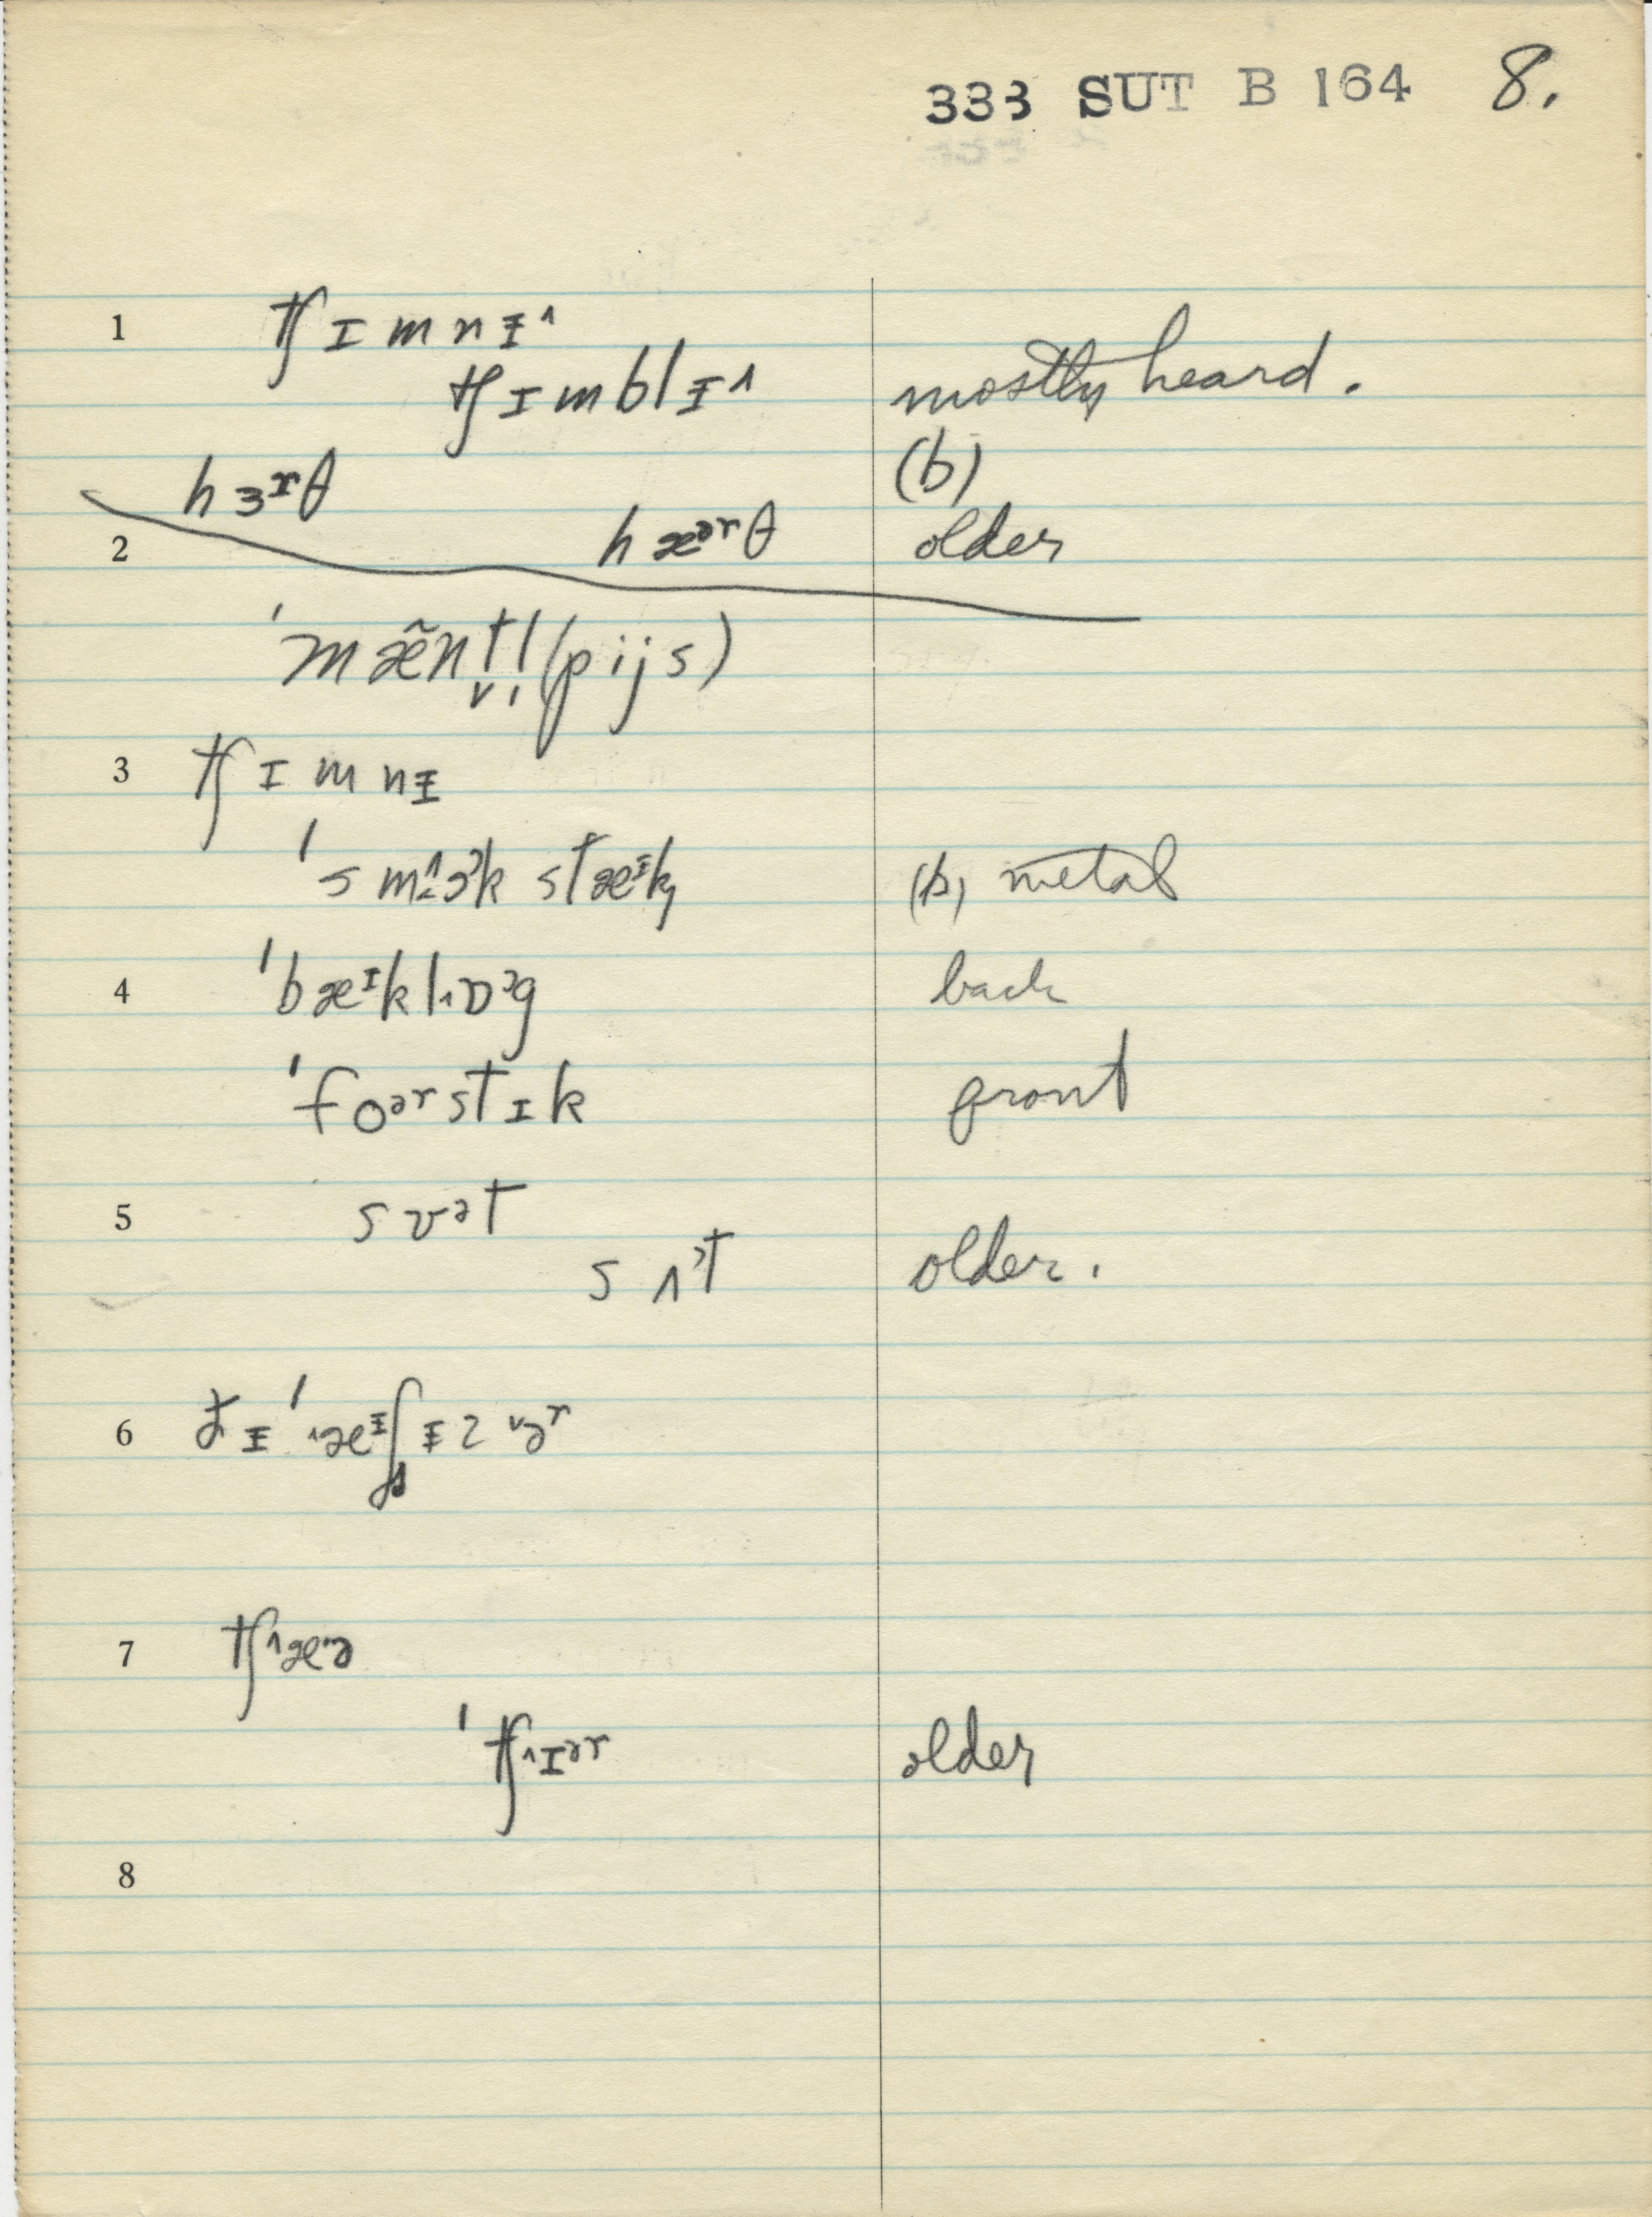 333 SUT B 164 8.
1 tʃɪmnɪ˄
tʃɪmblɪ˄ mostly heard.
hɜʳθ (b)
2 hæᵊʳθ older
ˈmæ̃ntl̩ (pijs)
3 tʃɪmnɪ
ˈsmoᵊk stæᶦk (b) metal
4 ˈbæᶦklɒᵊg back
ˈfoᵊʳstɪk front
5 sʊᵊt
sʌᵊt older.
6
7 tʃæə
ˈtʃɪᵊʳ older
8